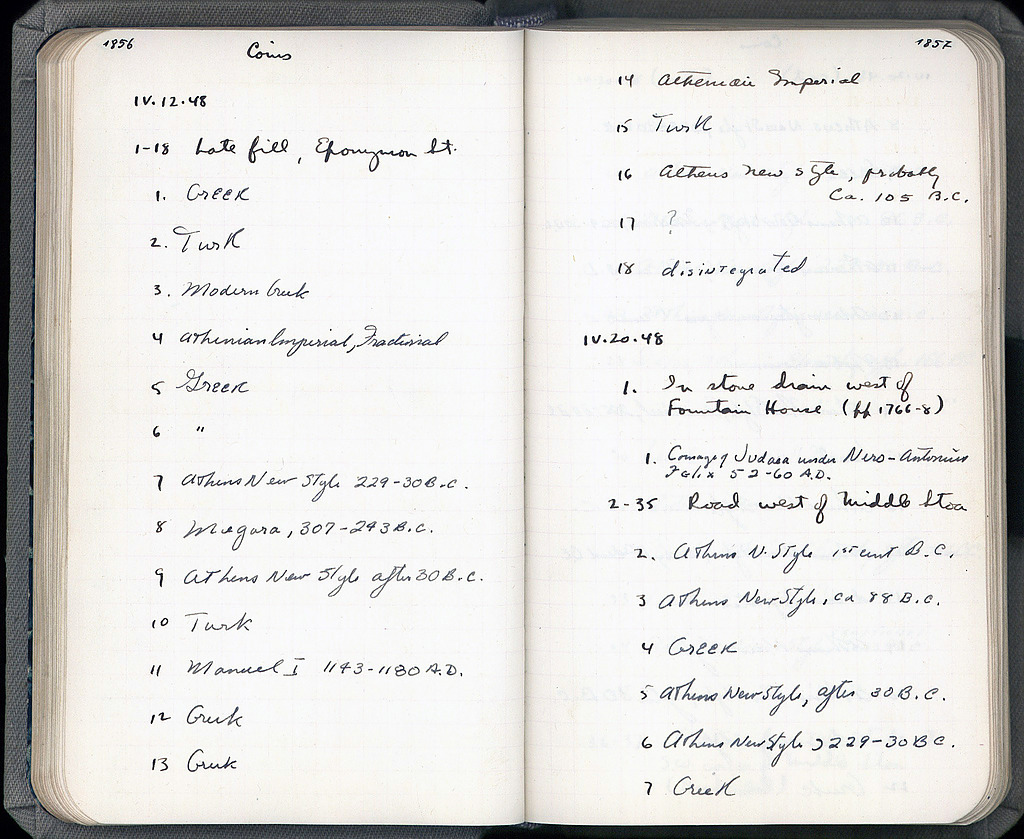 1856
Coins
IV.12.48
1-18 Late fill, Eponymon St.
1. Greek
2. Turk
3. Modern Greek
4 Athenian Imperial, Fractional
5 Greek
6 "
7 Athens New Style 229-30 B.C.
8 Megara, 307-243 B.C.
9 Athens New Style after 30 B.C.
10 Turk
11 Manuel I 1143-1180 A.D.
12 Greek
13 Greek
1857
14 Athenian Imperial
15 Turk
16 Athens new style, probably
Ca. 105 B.C.
17 ?
18 disintegrated
IV.20.48
1. In stone drain west of
Fountain House (pp 1766-8)
1. Coinage of Judaea under Nero - Antonius
Felix 52-60 A.D.
2-35 Road west of Middle Stoa
2. Athens N. Style 1st cent B.C.
3 Athens New Style, ca 88 B.C.
4 Greek
5 Athens New Style, after 30 B.C.
6 Athens New Style, 229-30 B.C.
7 Greek